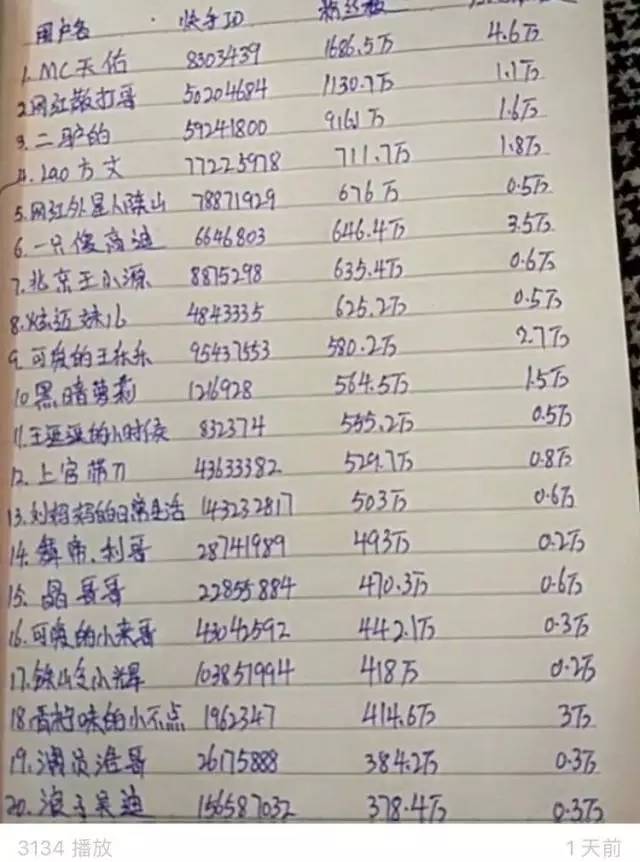 用户名 快手ID 粉丝数
1. MC天佑 8303439 1686.5万 4.6万
2. 网红散打哥 50204684 1130.7万 1.1万
3. 二驴的 59241800 916.1万 1.6万
4. 方文 77225978 711.7万 1.8万
5. 网红外星人陈山 78871929 676万 0.5万
6. 一只傻高迪 6646803 646.4万 3.5万
7. 北京王小源 8875298 635.4万 0.6万
8. 炫迈妹儿 4843335 625.2万 0.5万
9. 可爱的王乐乐 95437553 580.2万 2.7万
10. 黑暗萝莉 1216928 564.5万 1.5万
11. 王逗逗的小时候 832374 555.2万 0.5万
12. 上官带刀 43633382 529.7万 0.8万
13. 刘妈妈的日常生活 143232817 503万 0.6万
14. 舞帝、利哥 28741989 493万 0.2万
15. 晶哥哥 22855884 470.3万 0.6万
16. 可爱的小来哥 43042592 442.1万 0.3万
17. 铁山金小辉 103851994 418万 0.2万
18. 香柠味的小不点 1962347 414.6万 3万
19. 演员浩哥 26175888 384.2万 0.3万
20. 浪子吴迪 156587032 378.4万 0.3万
3134 播放 1天前